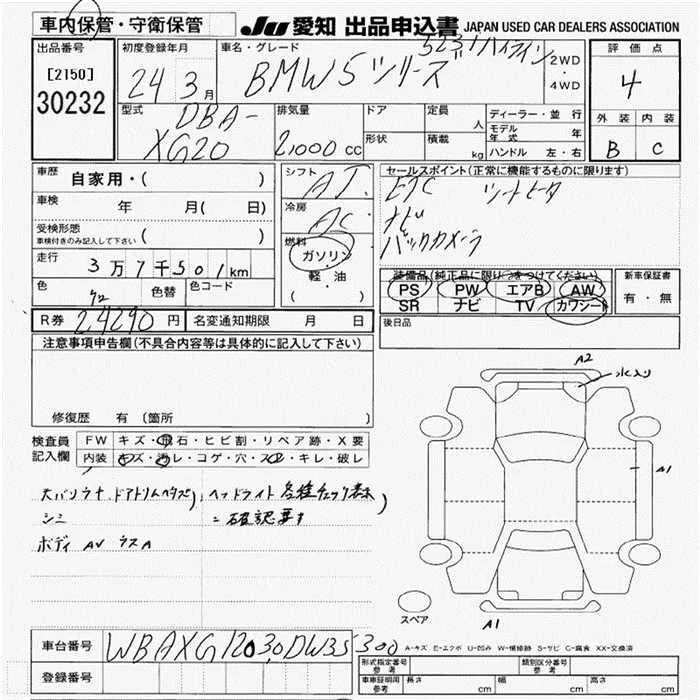 車内保管・守衛保管
JU 愛知 出品申込書 JAPAN USED CAR DEALERS ASSOCIATION
出品番号
[2150]
30232
初度登録年月
24 3月
車名・グレード
523iハイライン
BMW5シリーズ
2WD
・
4WD
評価点
4
外装 内装
B C
型式
DBA-
XG20
排気量
2,000 cc
ドア
形状
定員
人
積載
kg
ディーラー・並行
モデル年 年
ハンドル 左・右
車歴
自家用・( )
車検
年 月( 日)
受検形態
車検付きのみ記入して下さい ( )
走行
3万7千501km
色
色替
色コード
シフト
AT
冷房
AC
燃料
ガソリン
軽・油
( )
セールスポイント(正常に機能するものに限ります)
ETC シートヒータ
ナビ
バックカメラ
装備品(純正品に限り○をつけてください)
PS PW エアB AW
SR ナビ TV カワシート
新車保証書
有・無
後日品
R券 24290円
名変通知期限 月 日
注意事項申告欄(不具合内容等は具体的に記入して下さい)
修復歴 有 (箇所 )
検査員
記入欄
FW キズ・飛石・ヒビ割・リペア跡・X要
内装 キズ・汚レ・コゲ・穴・スレ・キレ・破レ
ヘッドライト 各種チェック表示
シミ
=確認要す
ボディ AV ラスA
A2
水入り
A1
スペア
A1
車台番号
WBAXG12030DW35300
登録番号
A-キズ E-エクボ U-凹み W-補修跡 S-サビ C-腐食 XX-交換済
形式指定番号
参考
類別区分番号
参考
車車証明用
参考
長さ cm
幅 cm
高さ cm